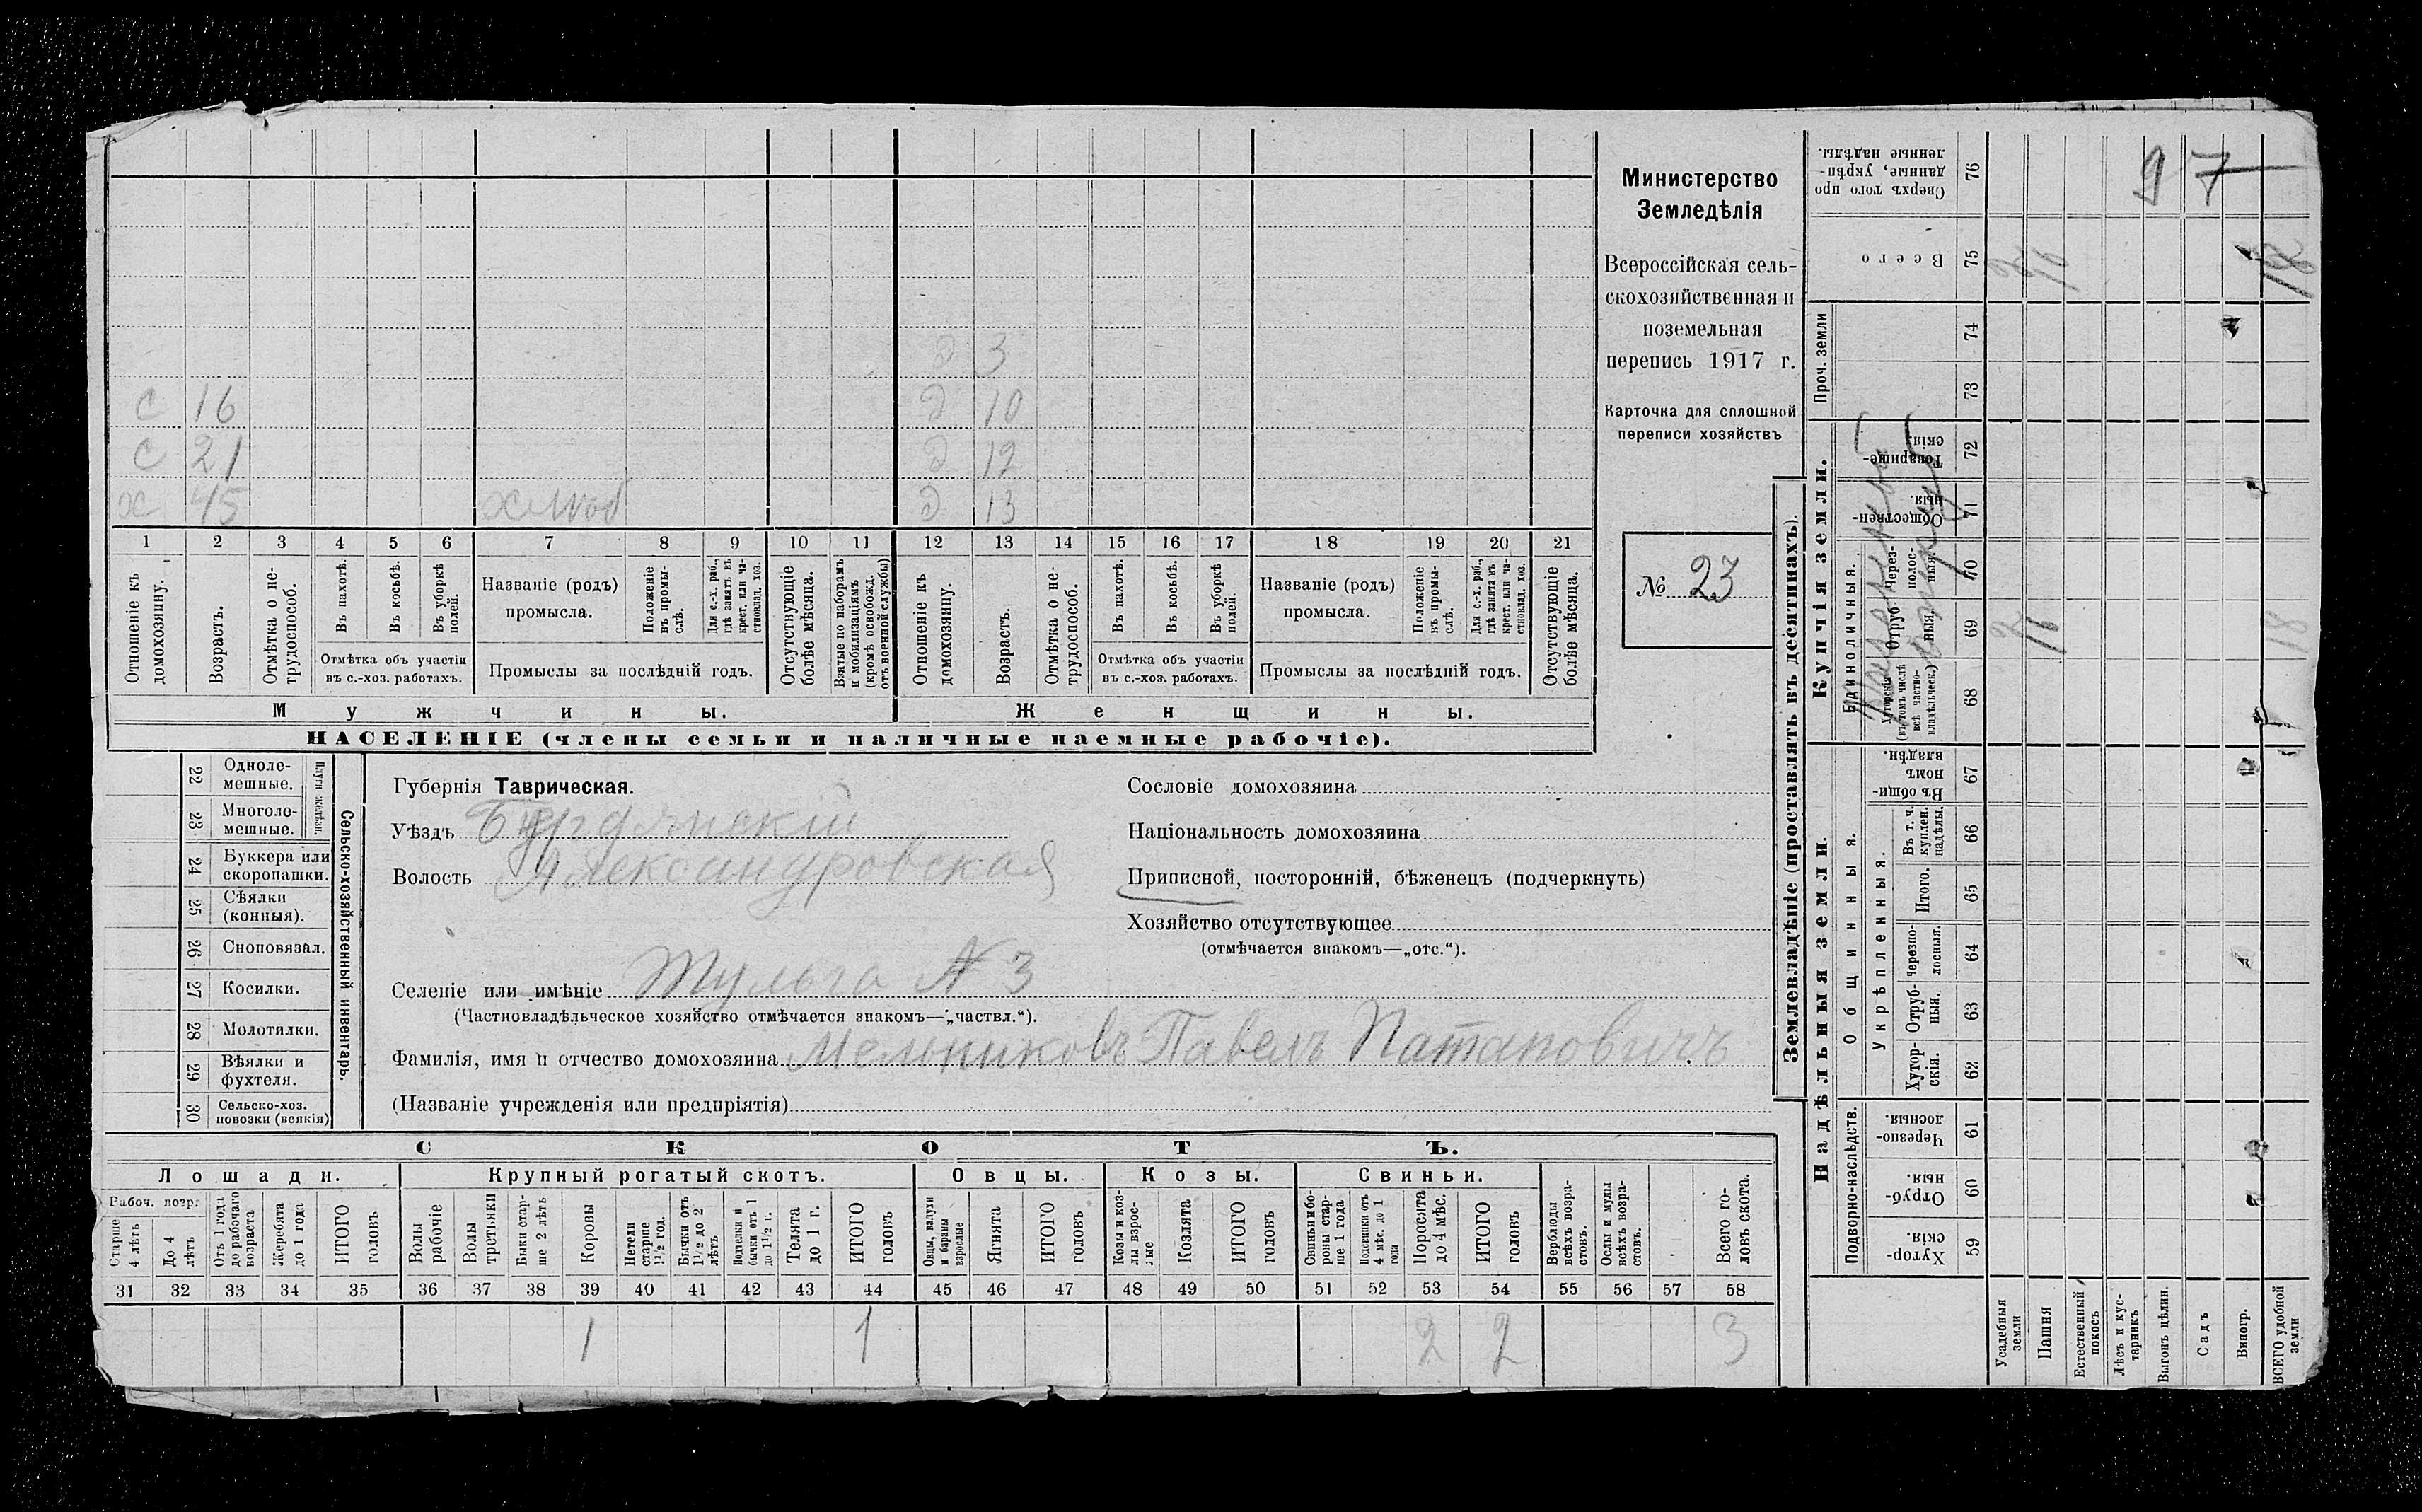 Министерство
Земледѣлія
Всероссійская сель-
скохозяйственная и
поземельная
перепись 1917 г.
Карточка для сплошной
переписи хозяйствъ
№ 23
д 3
с 16 д 10
с 21 д 12
х 45 д 13
1 2 3 4 5 6 7 8 9 10 11 12 13 14 15 16 17 18 19 20 21
Отношеніе къ домохозяину.
Возрастъ.
Отмѣтка о не-трудоспособ.
Въ пахотѣ.
Въ косьбѣ.
Въ уборкѣ полей.
Отмѣтка объ участіи въ с.-хоз. работахъ.
Названіе (родъ) промысла.
Положеніе въ промы-слѣ.
Для с.-х. раб., гдѣ занятъ въ крест. или ча-стновлад. хоз.
Промыслы за послѣдній годъ.
Отсутствующіе болѣе мѣсяца.
Взятые по наборамъ и мобилизаціямъ (кромѣ освобожд. отъ военной службы)
Отношеніе къ домохозяину.
Возрастъ.
Отмѣтка о не-трудоспособ.
Въ пахотѣ.
Въ косьбѣ.
Въ уборкѣ полей.
Отмѣтка объ участіи въ с.-хоз. работахъ.
Названіе (родъ) промысла.
Положеніе въ промы-слѣ.
Для с.-х. раб., гдѣ занята въ крест. или ча-стновлад. хоз.
Промыслы за послѣдній годъ.
Отсутствующіе болѣе мѣсяца.
Мужчины. Женщины.
НАСЕЛЕНІЕ (члены семьи и наличные наемные рабочіе).
22 Одноле-мешные.
23 Многоле-мешные.
Плуги желѣзн.
24 Буккера или скоропашки.
25 Сѣялки (конныя).
26 Сноповязал.
27 Косилки.
28 Молотилки.
29 Вѣялки и фухтеля.
30 Сельско-хоз. повозки (всякія)
Сельско-хозяйственный инвентарь.
Губернія Таврическая.
Уѣздъ Бердянскій
Волость Александровская
Сословіе домохозяина
Національность домохозяина
Приписной, посторонній, бѣженецъ (подчеркнуть)
Хозяйство отсутствующее
(отмѣчается знакомъ—„отс.“).
Селеніе или имѣніе Тульга № 3
(Частновладѣльческое хозяйство отмѣчается знакомъ—„частвл.“).
Фамилія, имя и отчество домохозяина Мельниковъ Павелъ Патаповичъ
(Названіе учрежденія или предпріятія)
СКОТЪ.
Лошади. Крупный рогатый скотъ. Овцы. Козы. Свиньи.
Рабоч. возр.
Старше 4 лѣтъ
До 4 лѣтъ
Отъ 1 года до рабочаго возраста
Жеребята до 1 года
ИТОГО головъ
Волы рабочіе
Волы третьяки
Быки стар-ше 2 лѣтъ
Коровы
Нетели старше 1 1/2 год.
Бычки отъ 1 1/2 до 2 лѣтъ
Подтелки и бычки отъ 1 до 1 1/2 г.
Телята до 1 г.
ИТОГО головъ
Овцы, валухи и бараны взрослые
Ягнята
ИТОГО головъ
Козы и коз-лы взрос-лые
Козлята
ИТОГО головъ
Свиньи и бо-ровы стар-ше 1 года
Подсвинки отъ 4 мѣс. до 1 года
Поросята до 4 мѣс.
ИТОГО головъ
Верблюды всѣхъ возра-стовъ.
Ослы и мулы всѣхъ возра-стовъ.
Всего го-ловъ скота.
31 32 33 34 35 36 37 38 39 40 41 42 43 44 45 46 47 48 49 50 51 52 53 54 55 56 57 58
1 1 2 2 3
Землевладѣніе (проставлять въ десятинахъ).
Надѣльныя земли. Купчія земли. Проч. земли
Подворно-наслѣдств.
Общинныя.
Укрѣпленныя.
Единоличныя.
59 Хутор-скія.
60 Отруб-ныя.
61 Черезпо-лосныя.
62 Хутор-скія.
63 Отруб-ныя.
64 Черезпо-лосныя.
65 Итого.
66 Въ т. ч. куплен. надѣлы.
67 Въ общи-номъ владѣн.
68 Хуторскія (въ томъ числѣ всѣ частно-владѣльческ.)
69 Отруб-ныя.
70 Через-полос-ныя.
71 Обществен-ныя.
72 Товарище-скія.
73
74
75 Всего
76 Сверхъ того про-данные, укрѣп-ленные надѣлы.
Усадебныя земли 2 2
Пашня 16 16
Естественный покосъ
Лѣсъ и кус-тарникъ
Выгонъ цѣлин.
Садъ
Виногр.
ВСЕГО удобной земли 18 18
97